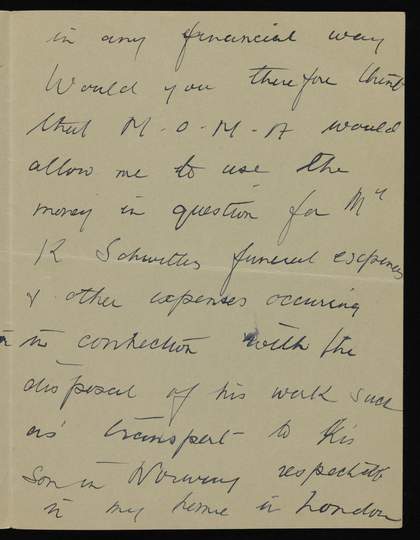 in any financial way
Would you therefore think
that M-O-M-A would
allow me to use the
money in question for Mr
K Schwitters funeral expenses
& other expenses occuring
in connection with the
disposal of his work such
as transport to his
son in Norway respectab
in my home in London